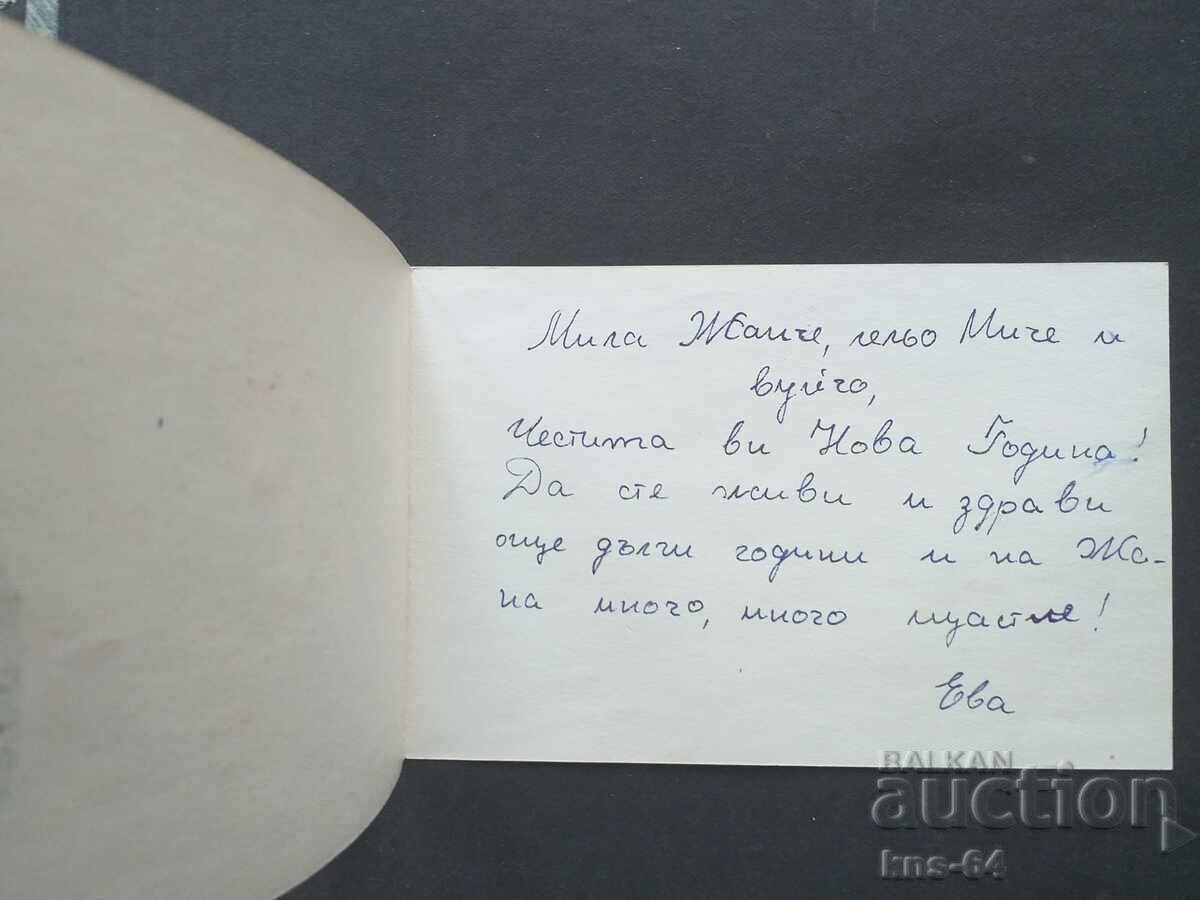 Мила Жанче, лельо Миче и
вуйчо,
Честита ви Нова Година!
Да сте живи и здрави
още дълги години и на Жа-
на много, много щастие!
Ева
BALKAN
auction
kns-64